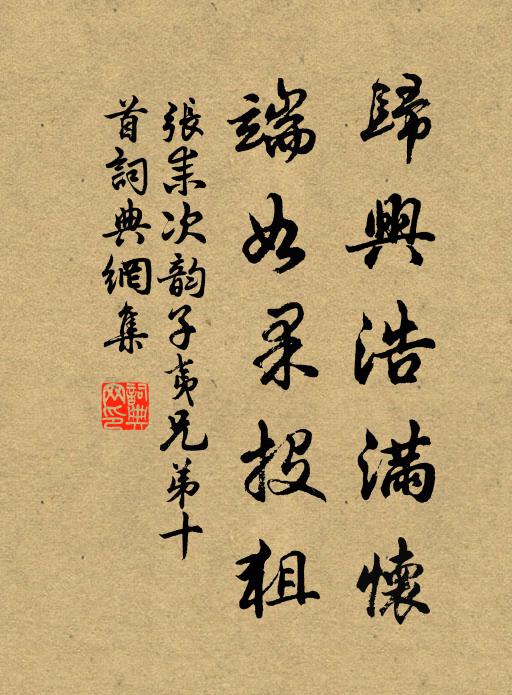 歸興浩滿懷
端如果投狙
張耒次韵子夷兄弟十
首詞典網集
詞典
网印